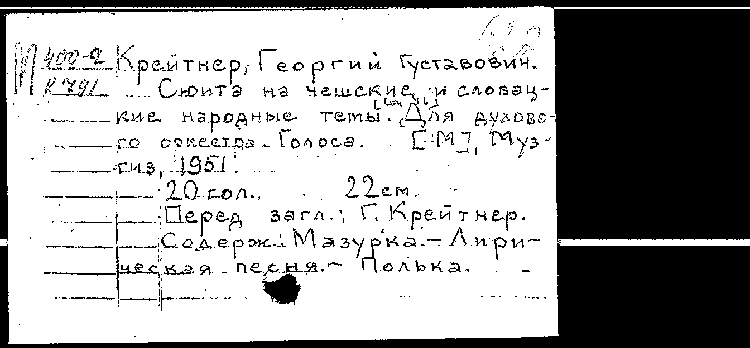 М 400-2
К 791
Крейтнер, Георгий Густавович.
Сюита на чешские и словац-
кие народные темы. [Для духово-
го оркестра. Голоса. [М], Муз-
гиз, 1951.
20 гол. 22 см.
Перед загл.: Г. Крейтнер.
Содерж.: Мазурка. - Лири-
ческая песня. - Полька.